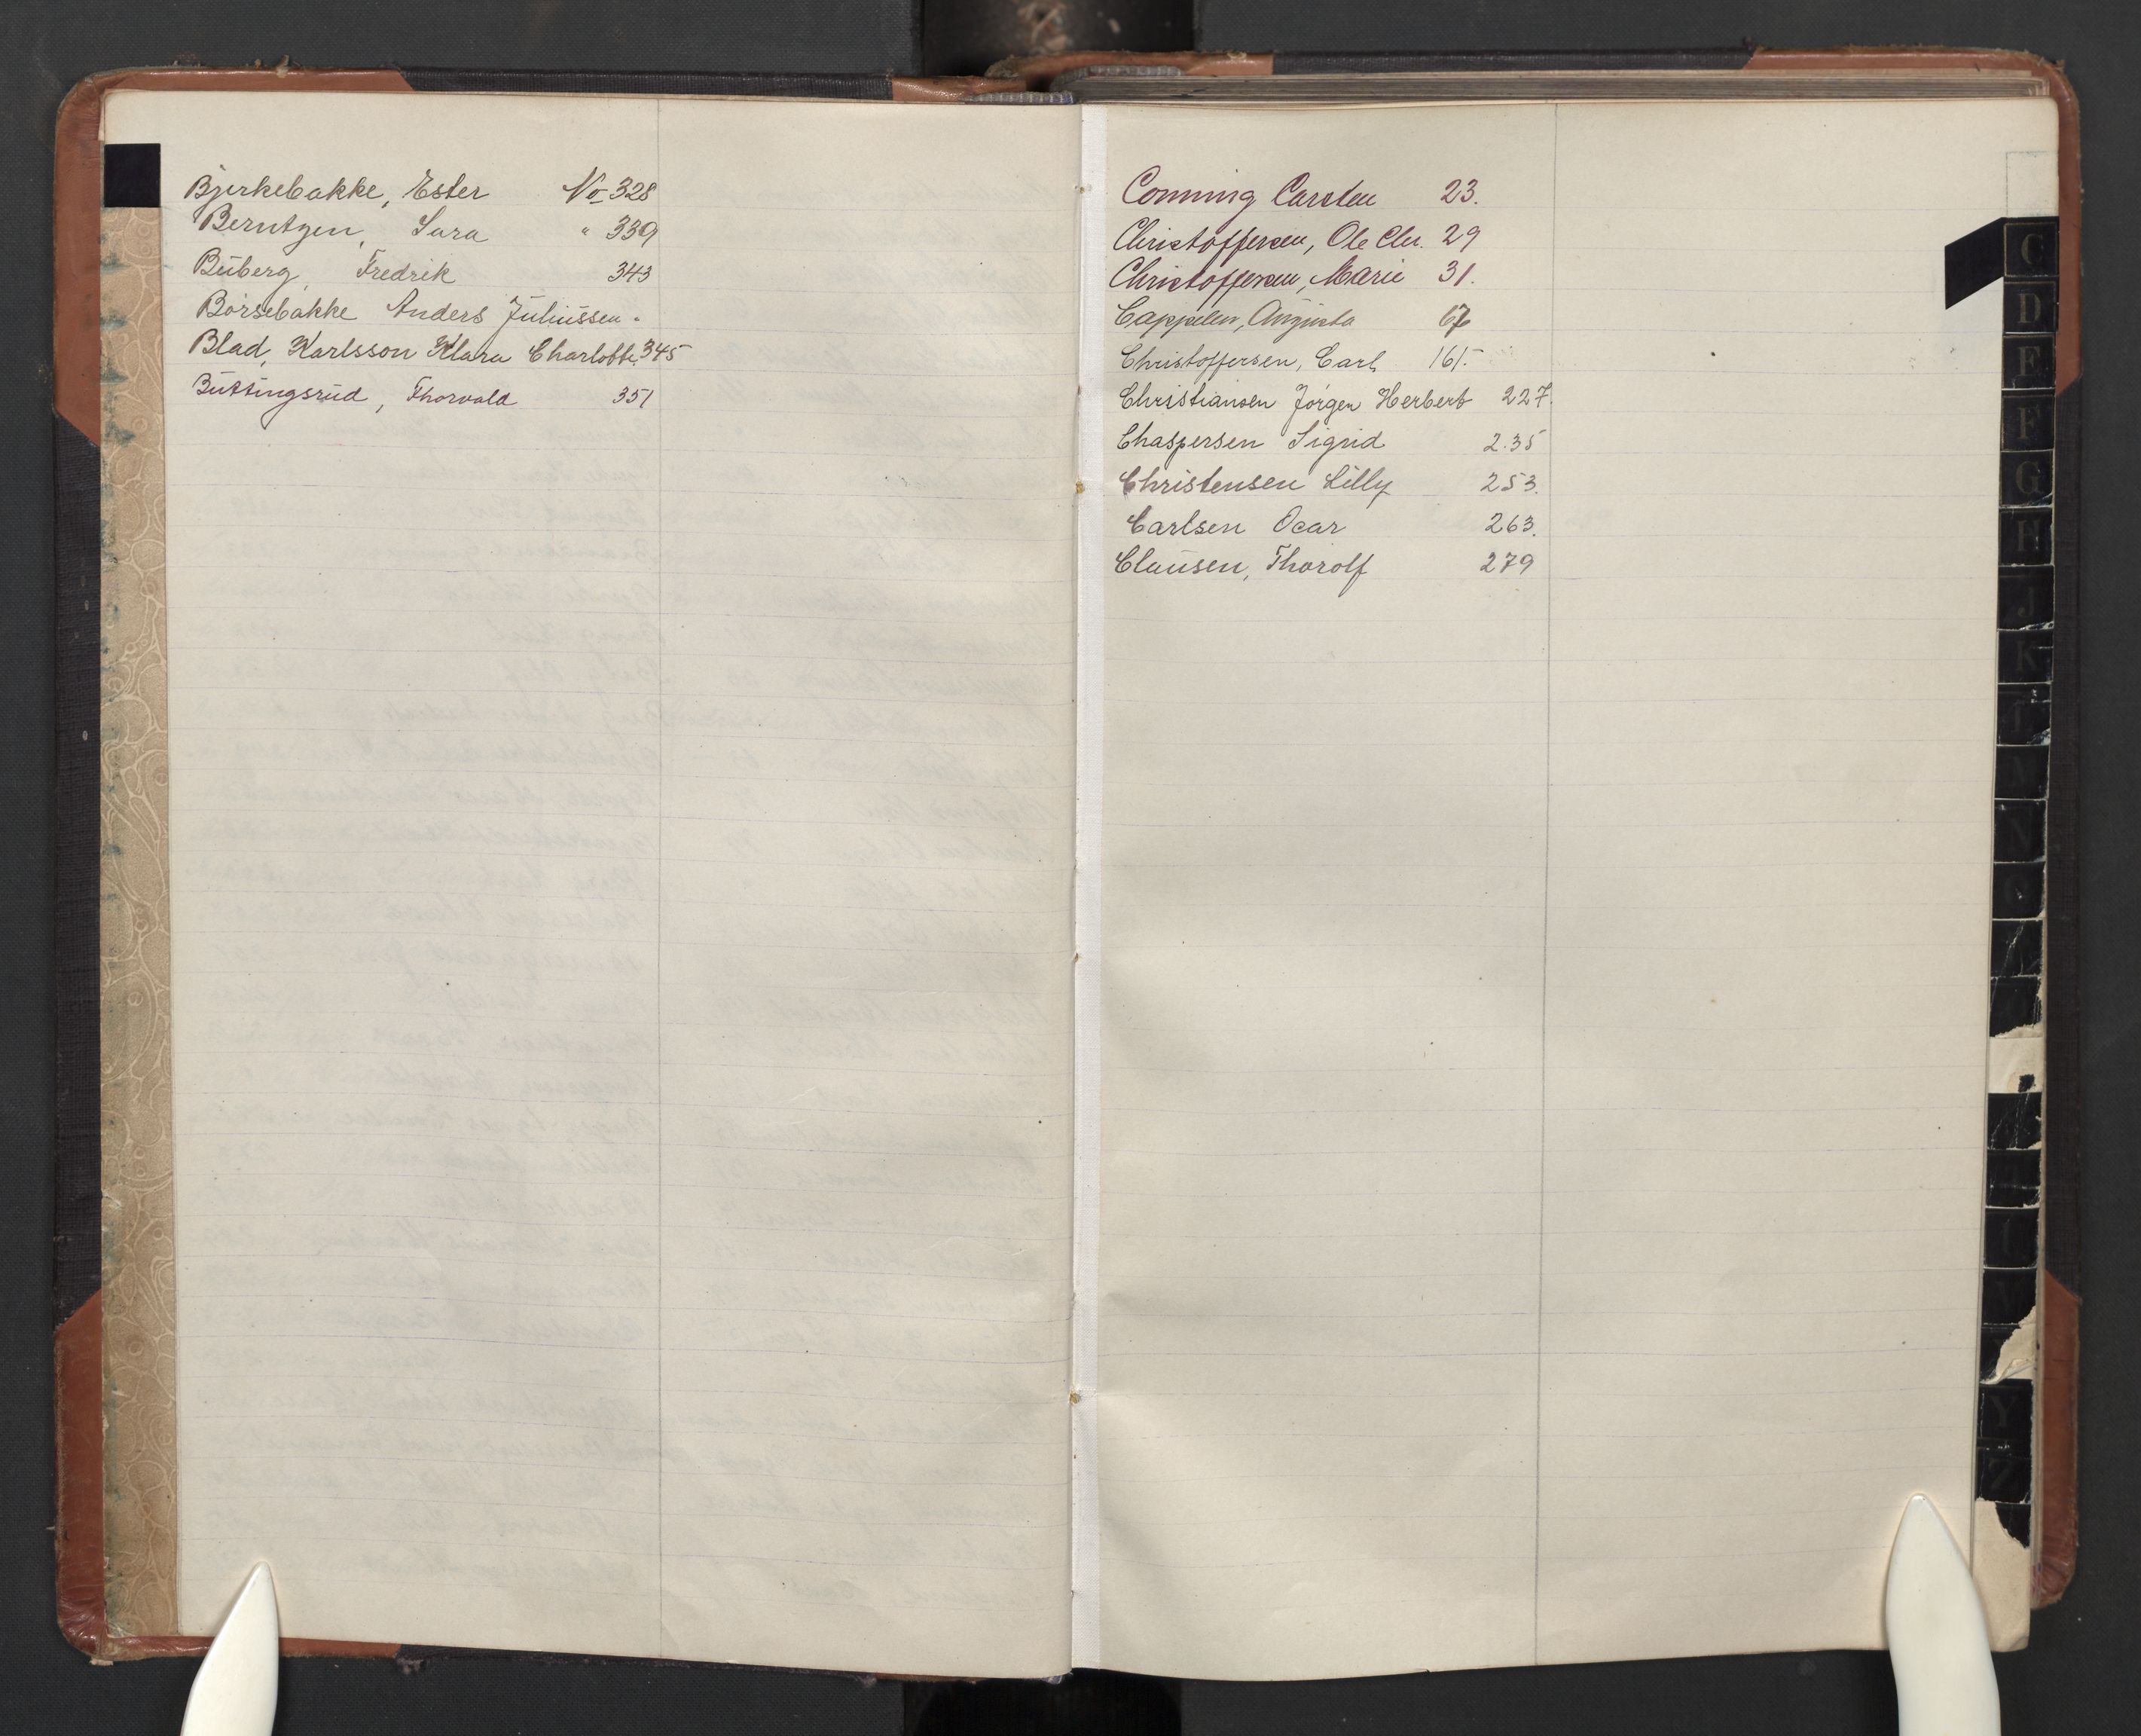 Bjerkebakke, Ester No 328
Berntzen, Sara " 339
Buberg, Fredrik 343
Börsebakke Anders Juliussen "
Blad, Karlsson Klara Charlotte 345
Buttingsrud, Thorvald 351
Conning Carsten 23.
Christoffersen, Ole Chr. 29
Christoffersen, Marie 31.
Cappelen, Augusta 67
Christoffersen, Carl 161.
Christiansen Jörgen Herbert 227.
Chaspersen Sigrid 235
Christensen Lilly 253.
Carlsen Ocar 263.
Clausen, Thorolf 279
C
D
E
F
G
H
J
K
N
Y
Z